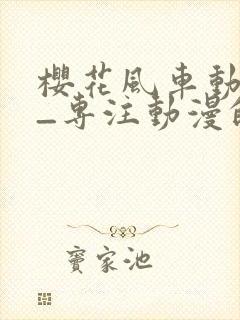 櫻花風車動
—專注動漫的
寶家池